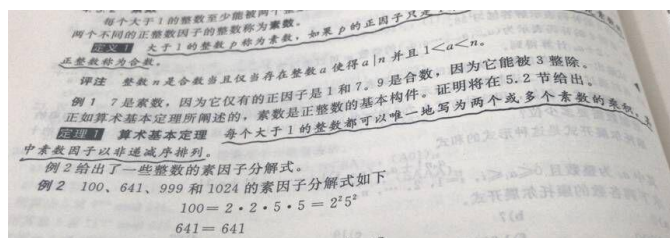 每个大于1的整数至少能被两个
两个不同的正整数因子的整数称为素数。
定义1 大于1的整数p称为素数，如果p的正因子只是
正整数称为合数。
评注 整数n是合数当且仅当存在整数a使得a|n并且1<a<n。
例1 7是素数，因为它仅有的正因子是1和7。9是合数，因为它能被3整除。
正如算术基本定理所阐述的，素数是正整数的基本构件。证明将在5.2节给出。
定理1 算术基本定理 每个大于1的整数都可以唯一地写为两个或多个素数的乘积，其
中素数因子以非递减序排列。
例2给出了一些整数的素因子分解式。
例2 100、641、999和1024的素因子分解式如下
100=2·2·5·5=2²5²
641=641